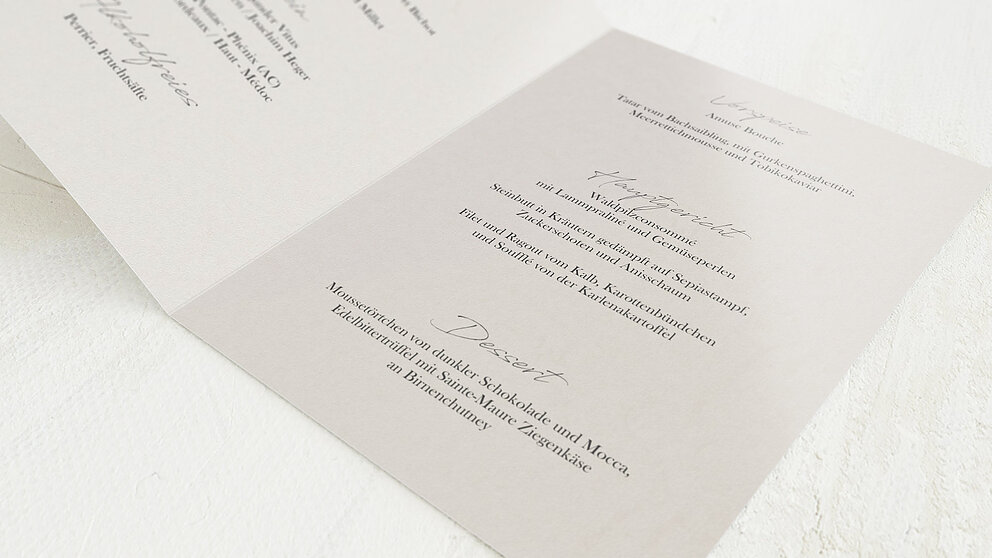 Müller
Bachst
ein
ander Vinus
en / Joachim Heger
Pontac - Phénix (AC)
Bordeaux / Haut - Médoc
Alkoholfreies
Perrier, Fruchtsäfte
Vorspeise
Amuse Bouche
Tatar vom Bachsaibling, mit Gurkenspaghettini,
Meerrettichmousse und Tobikokaviar
Hauptgericht
Waldpilzconsommé
mit Lammpraliné und Gemüseperlen
Steinbutt in Kräutern gedämpft auf Sepiastampf,
Zuckerschoten und Anisschaum
Filet und Ragout vom Kalb, Karottenbündchen
und Soufflé von der Karlenakartoffel
Dessert
Moussetörtchen von dunkler Schokolade und Mocca,
Edelbittertrüffel mit Sainte-Maure Ziegenkäse
an Birnenchutney